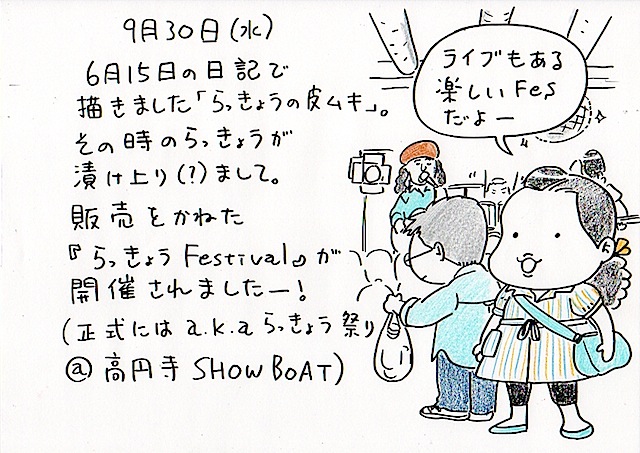 9月30日(水)
6月15日の日記で
描きました「らっきょうの皮ムキ」。
その時のらっきょうが
漬け上り(?)まして。
販売をかねた
『らっきょう Festival』が
開催されましたー!
(正式には a.k.a らっきょう祭り
@高円寺 SHOW BOAT)
ライブもある
楽しい Fes
だよー